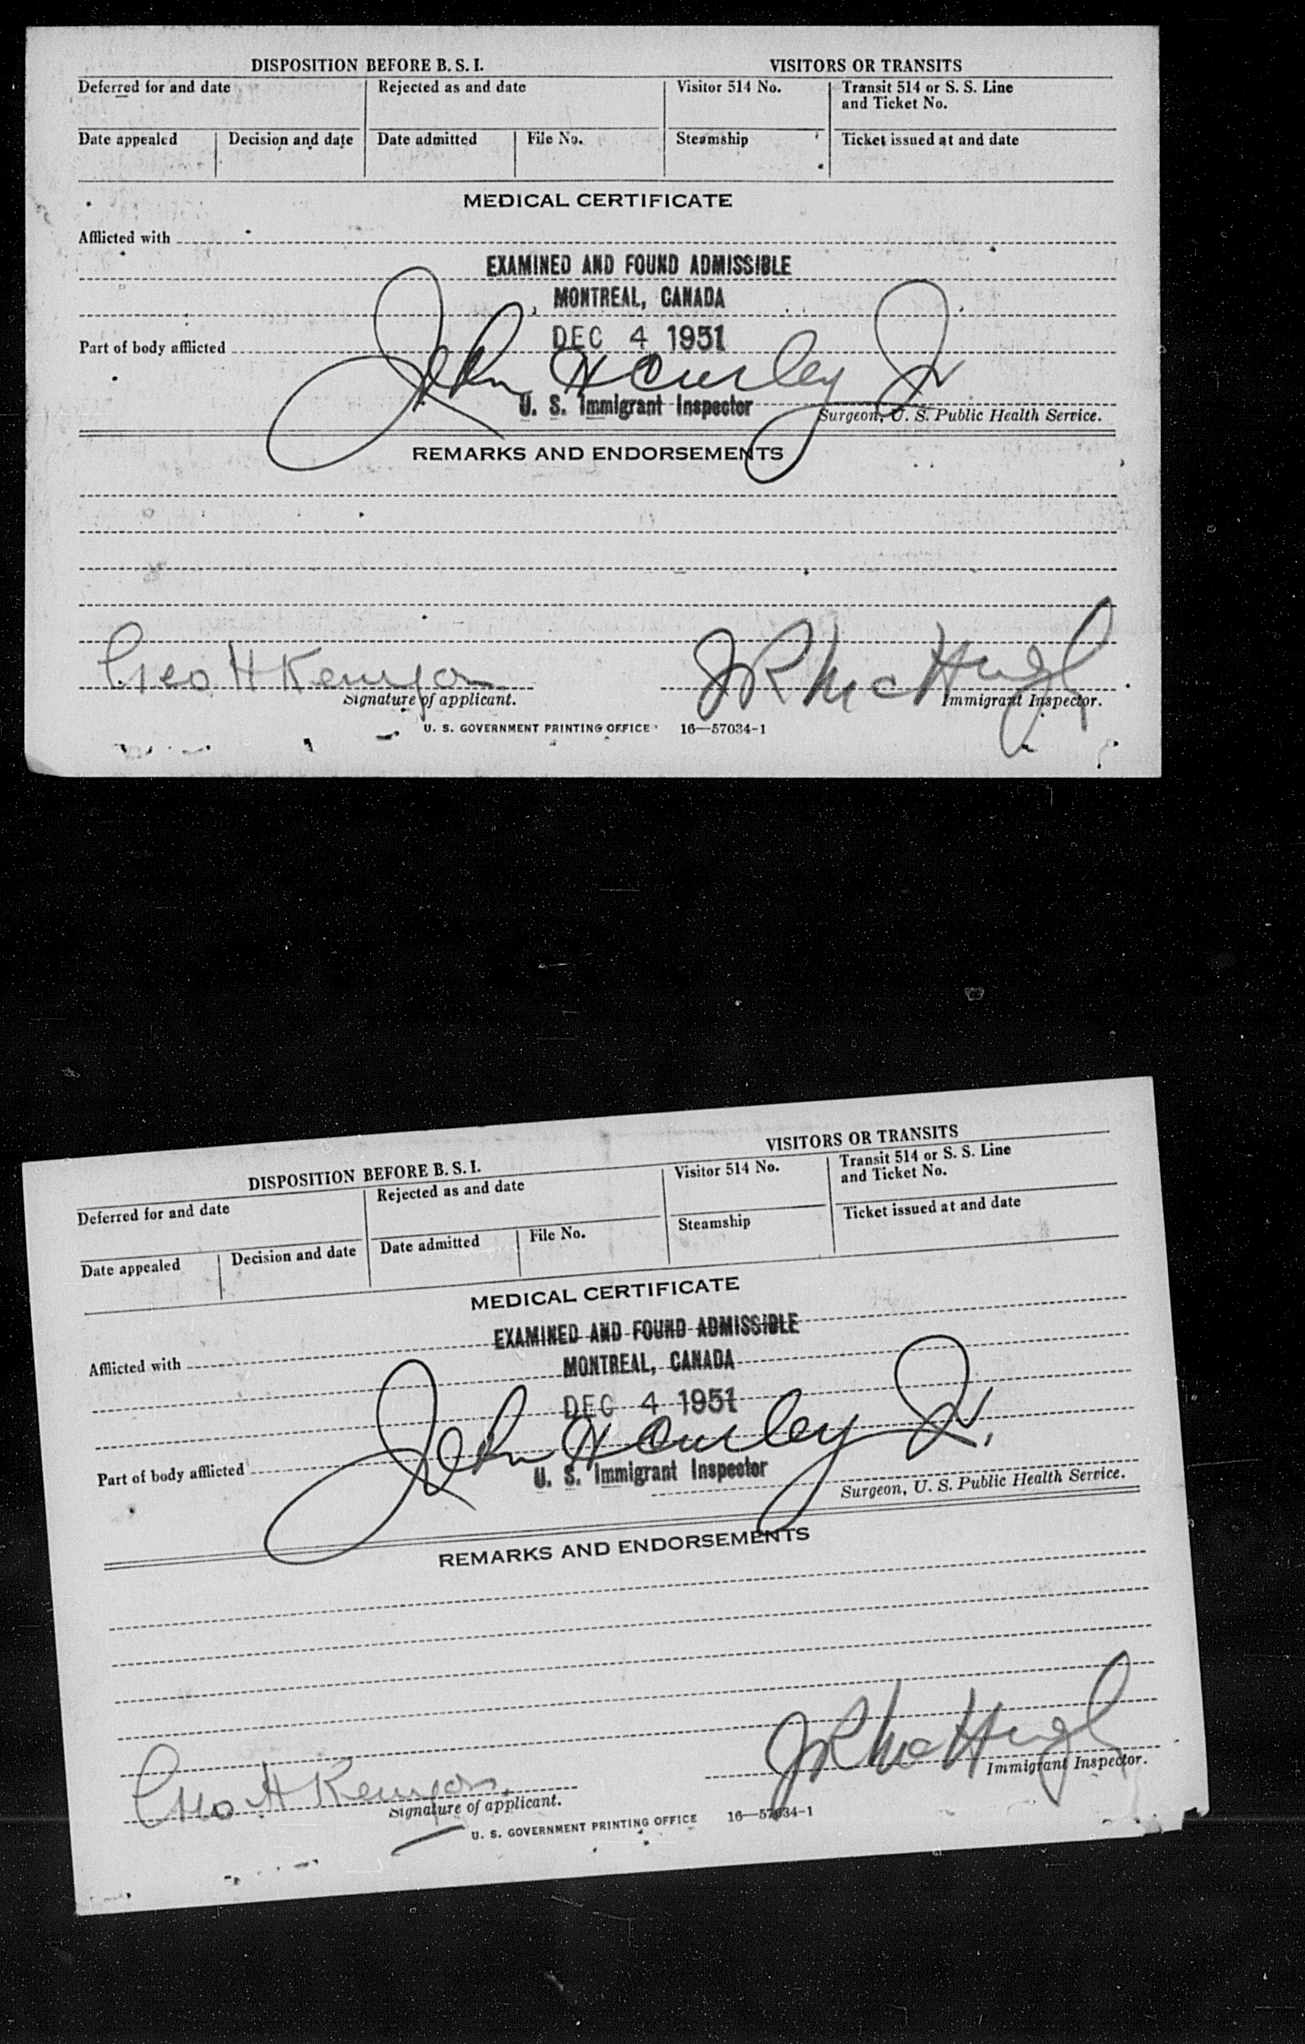 DISPOSITION BEFORE B. S. I. VISITORS OR TRANSITS
Deferred for and date Rejected as and date Visitor 514 No. Transit 514 or S. S. Line
and Ticket No.
Date appealed Decision and date Date admitted File No. Steamship Ticket issued at and date
MEDICAL CERTIFICATE
Afflicted with
EXAMINED AND FOUND ADMISSIBLE
MONTREAL, CANADA
DEC 4 1951
Part of body afflicted
John H Curley Jr
U. S. Immigrant Inspector
Surgeon, U. S. Public Health Service.
REMARKS AND ENDORSEMENTS
Geo H Kenyon JR McHugh
Signature of applicant. Immigrant Inspector.
U. S. GOVERNMENT PRINTING OFFICE 16—57034-1
DISPOSITION BEFORE B. S. I. VISITORS OR TRANSITS
Deferred for and date Rejected as and date Visitor 514 No. Transit 514 or S. S. Line
and Ticket No.
Date appealed Decision and date Date admitted File No. Steamship Ticket issued at and date
MEDICAL CERTIFICATE
Afflicted with
EXAMINED AND FOUND ADMISSIBLE
MONTREAL, CANADA
DEC 4 1951
Part of body afflicted
John H Curley Jr.
U. S. Immigrant Inspector
Surgeon, U. S. Public Health Service.
REMARKS AND ENDORSEMENTS
Geo H Kenyon. JR McHugh
Signature of applicant. Immigrant Inspector.
U. S. GOVERNMENT PRINTING OFFICE 16—57034-1